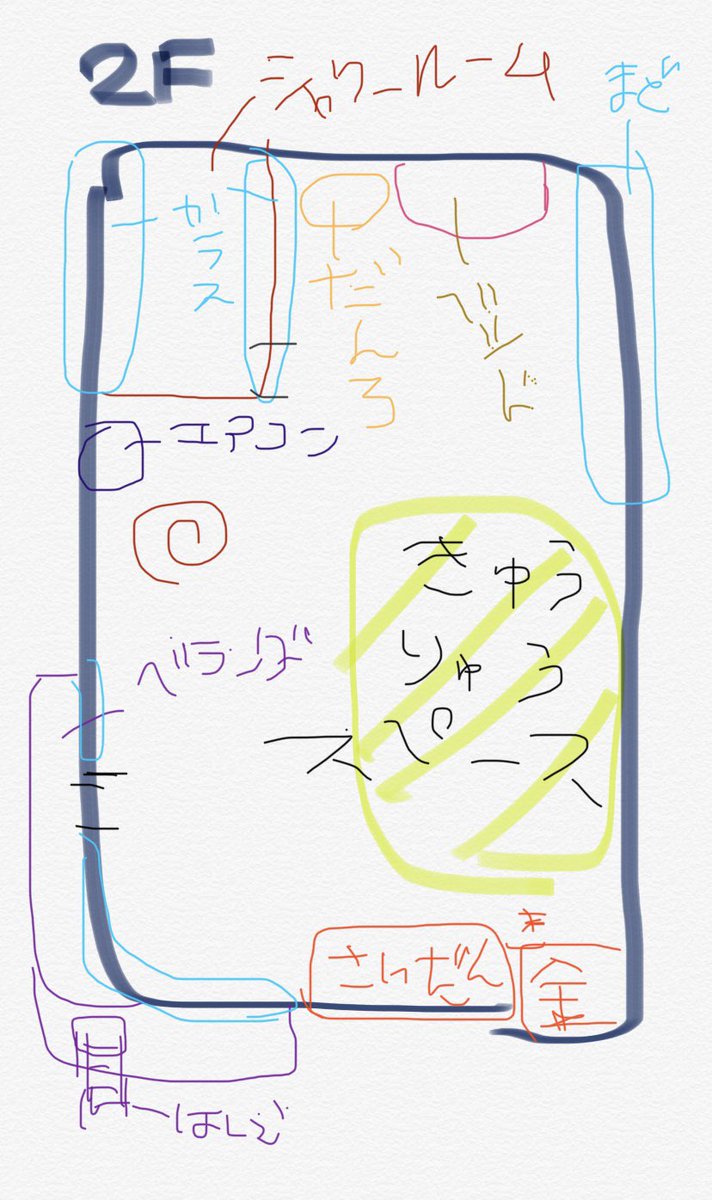 2F
シャワールーム
まど
ガラス
だんろ
ベッド
エアコン
きゅう
りゅう
スペース
ベランダ
さいだん
金
はしご